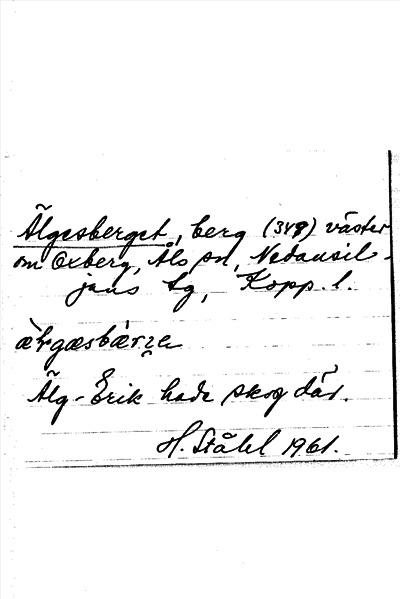 Älgesberget, berg (348) väster
om Oxberg, Åls sn, Nedansil-
jans tg, Kopp. l.
æ̀łgæsbæ̀rɛ
Älg-Erik hade skog där.
H. Ståhl 1961.